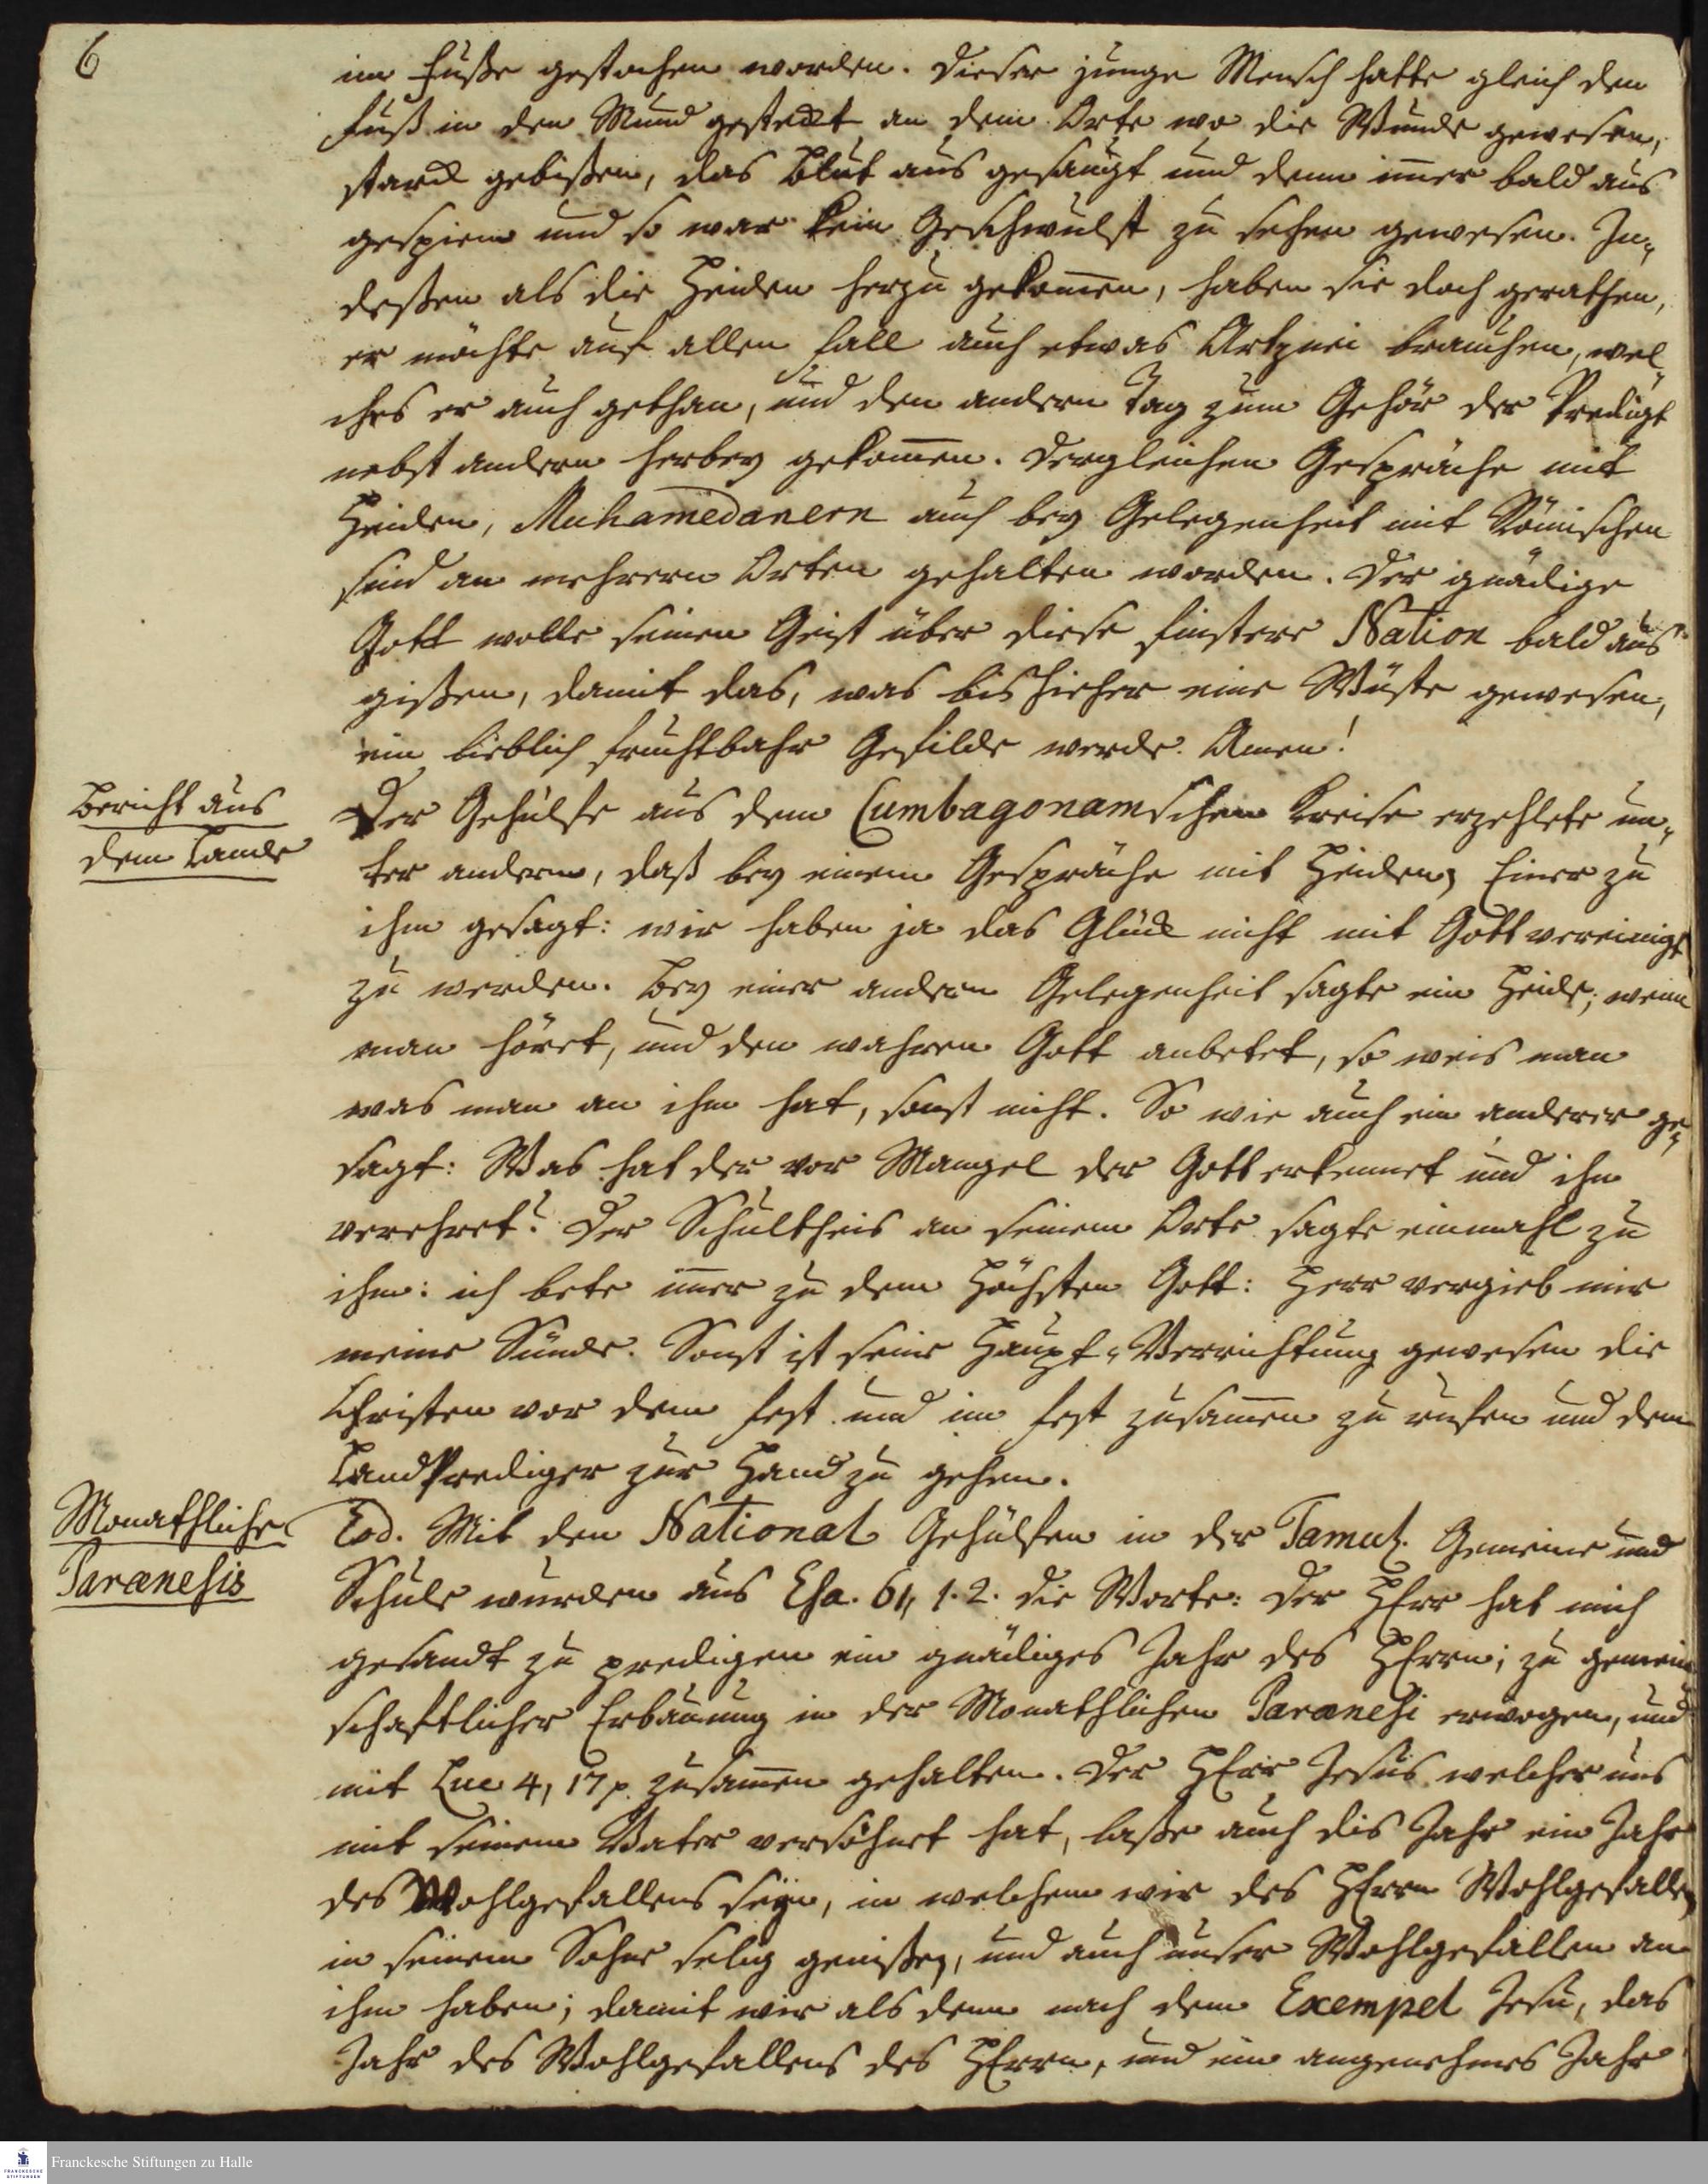 6
im Fuße gestochen worden. Dieser junge Mensch hatte gleich den
Fuß in den Mund gesteckt an dem Orte wo die Wunde gewesen,
starck gebißen, das Blut aus gesaugt und denn im̅er bald aus
gespien und so war kein Geschwulst zu sehen gewesen. In-
deßen als die Heiden herzu gekom̅en, haben sie doch gerathen,
er möchte auf allen Fall auch etwas Artznei brauchen, wel-
ches er auch gethan, und den andern Tag zum Gehör der Predigt
nebst andern herbey gekom̅en. Dergleichen Gespräche mit
Heiden, Muhamedanern auch bey Gelegenheit mit Römischen
sind an mehrern Orten gehalten worden. Der gnädige
Gott wolle seinen Geist über diese finstere Nation bald aus-
gißen, damit das, was bishieher eine Wüste gewesen,
ein lieblich fruchtbahr Gefilde werde. Amen!
Bericht aus
dem Lande
Der Gehülfe aus dem Cumbagonamschen Kreise erzehlete un-
ter andern, daß bey einem Gespräche mit Heiden, Einer zu
ihm gesagt: wir haben ja das Glück nicht mit Gott vereinigt
zu werden. Bey einer andern Gelegenheit sagte ein Heide; wenn
man höret, und den wahren Gott anbetet, so weis man
was man an ihm hat, sonst nicht. So wie auch ein anderer ge-
sagt: Was hat der vor Mangel der Gott erkennet und ihn
verehret? Der Schultheis an seinem Orte sagte einmahl zu
ihm: ich bete im̅er zu dem Höchsten Gott: Herr vergieb mir
meine Sünde. Sonst ist seine Haupt-Verrichtung gewesen die
Christen vor dem Fest und im Fest zusam̅en zu rufen und dem
Landprediger zur Hand zu gehen.
Monathliche
Paraenesis
Eod. Mit den National Gehülfen in der Tamul. Gemeine und
Schule wurden aus Esa. 61, 1.2. die Worte: Der HErr hat mich
gesandt zu predigen ein gnädiges Jahr des HErrn; zu gemein
schaftlicher Erbauung in der Monathlichen Paraenesi erwogen, und
mit Luc 4, 17 p. zusam̅en gehalten. Der HErr Jesus welcher uns
mit seinem Vater versöhnet hat, laße auch dis Jahr ein Jahr
des Wohlgefallens seyn, in welchem wir des HErrn Wohlgefallen
in seinem Sohne selig genißen, und auch unser Wohlgefallen an
ihm haben; damit wir als denn nach dem Exempel Jesu, das
Jahr des Wohlgefallens des HErrn, und ein angenehmes Jahr
Franckesche Stiftungen zu Halle
FRANCKESCHE
STIFTUNGEN